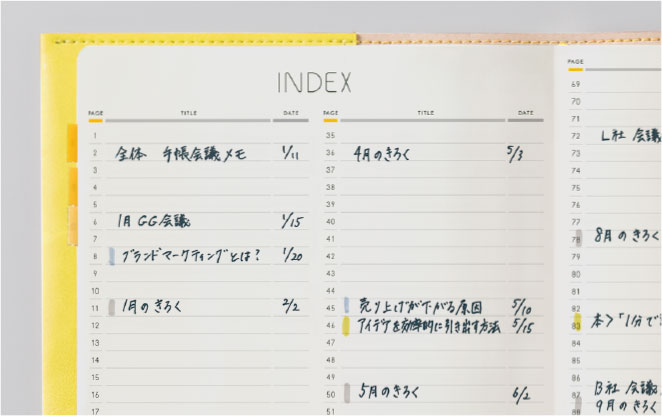 INDEX
PAGE TITLE DATE
1
2 全体 手帳会議メモ 1/11
3
4
5
6 1月 GG会議 1/15
7
8 ブランドマーケティングとは? 1/20
9
10
11 1月のきろく 2/2
12
13
14
15
16
17
PAGE TITLE DATE
35
36 4月のきろく 5/3
37
38
39
40
41
42
43
44
45 売り上げが下がる原因 5/10
46 アイデアを効率的に引き出す方法 5/15
47
48
49
50 5月のきろく 6/2
51
PAGE
69
70
71
72 L社 会議
73
74
75
76
77
78 8月のきろく
79
80
81
82
83 本>「1分で
84
85
86
87 B社 会議
88 9月のきろく